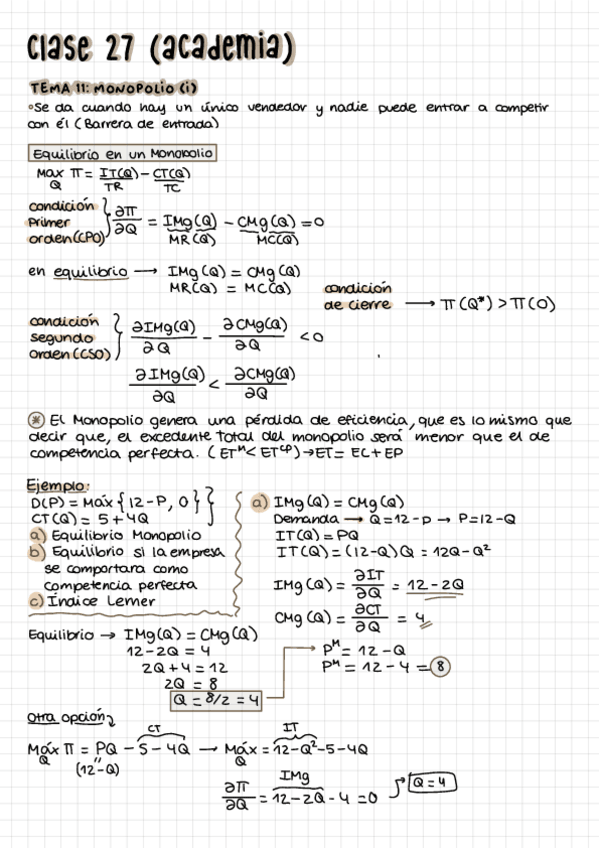 Clase 27 (academia)
TEMA 11: MONOPOLIO (i)
°Se da cuando hay un único vendedor y nadie puede entrar a competir
con él (Barrera de entrada)
Equilibrio en un Monopolio
Max π = IT(Q) - CT(Q)
Q TR TC
condición
Primer
orden(CPO)
∂π/∂Q = IMg(Q) - CMg(Q) = 0
MR(Q) MC(Q)
en equilibrio → IMg(Q) = CMg(Q)
MR(Q) = MC(Q)
condición
de cierre → π(Q*) > π(0)
condición
segundo
orden(CSO)
∂IMg(Q)/∂Q - ∂CMg(Q)/∂Q < 0
∂IMg(Q)/∂Q < ∂CMg(Q)/∂Q
* El Monopolio genera una pérdida de eficiencia, que es lo mismo que
decir que, el excedente total del monopolio será menor que el de
competencia perfecta. (ETᴹ < ETᶜᵖ) → ET = EC + EP
Ejemplo:
D(P) = Máx { 12-P, 0 }
CT(Q) = 5+4Q
a) Equilibrio Monopolio
b) Equilibrio si la empresa
se comportara como
competencia perfecta
c) Índice Lerner
a) IMg(Q) = CMg(Q)
Demanda → Q = 12-P → P=12-Q
IT(Q) = PQ
IT(Q) = (12-Q)Q = 12Q - Q²
IMg(Q) = ∂IT/∂Q = 12-2Q
CMg(Q) = ∂CT/∂Q = 4
Equilibrio → IMg(Q) = CMg(Q)
12-2Q = 4
2Q+4 = 12
2Q = 8
Q = 8/2 = 4
Pᴹ = 12-Q
Pᴹ = 12-4 = 8
Otra opción
CT IT
Máx π = PQ - 5 - 4Q → Máx = 12-Q²-5-4Q
Q (12-Q) Q
IMg
∂π/∂Q = 12-2Q-4 = 0
Q = 4